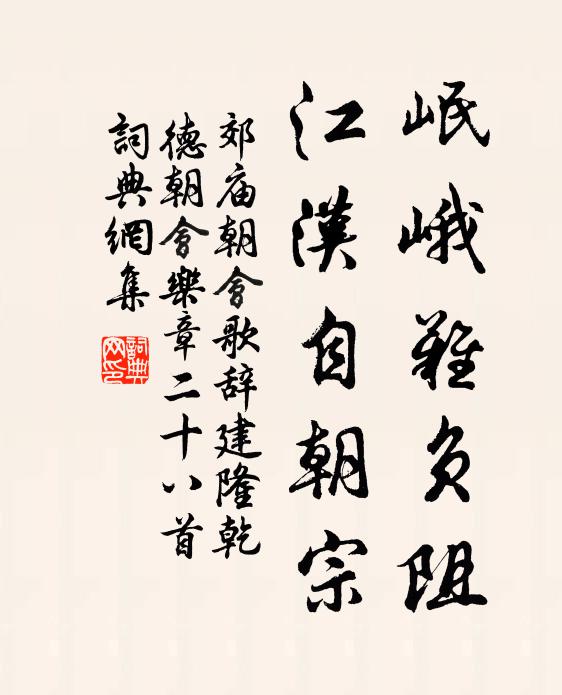 岷峨難負阻
江漢自朝宗
郊庙朝會歌辞建隆乾
德朝會樂章二十八首
詞典網集
詞典網印